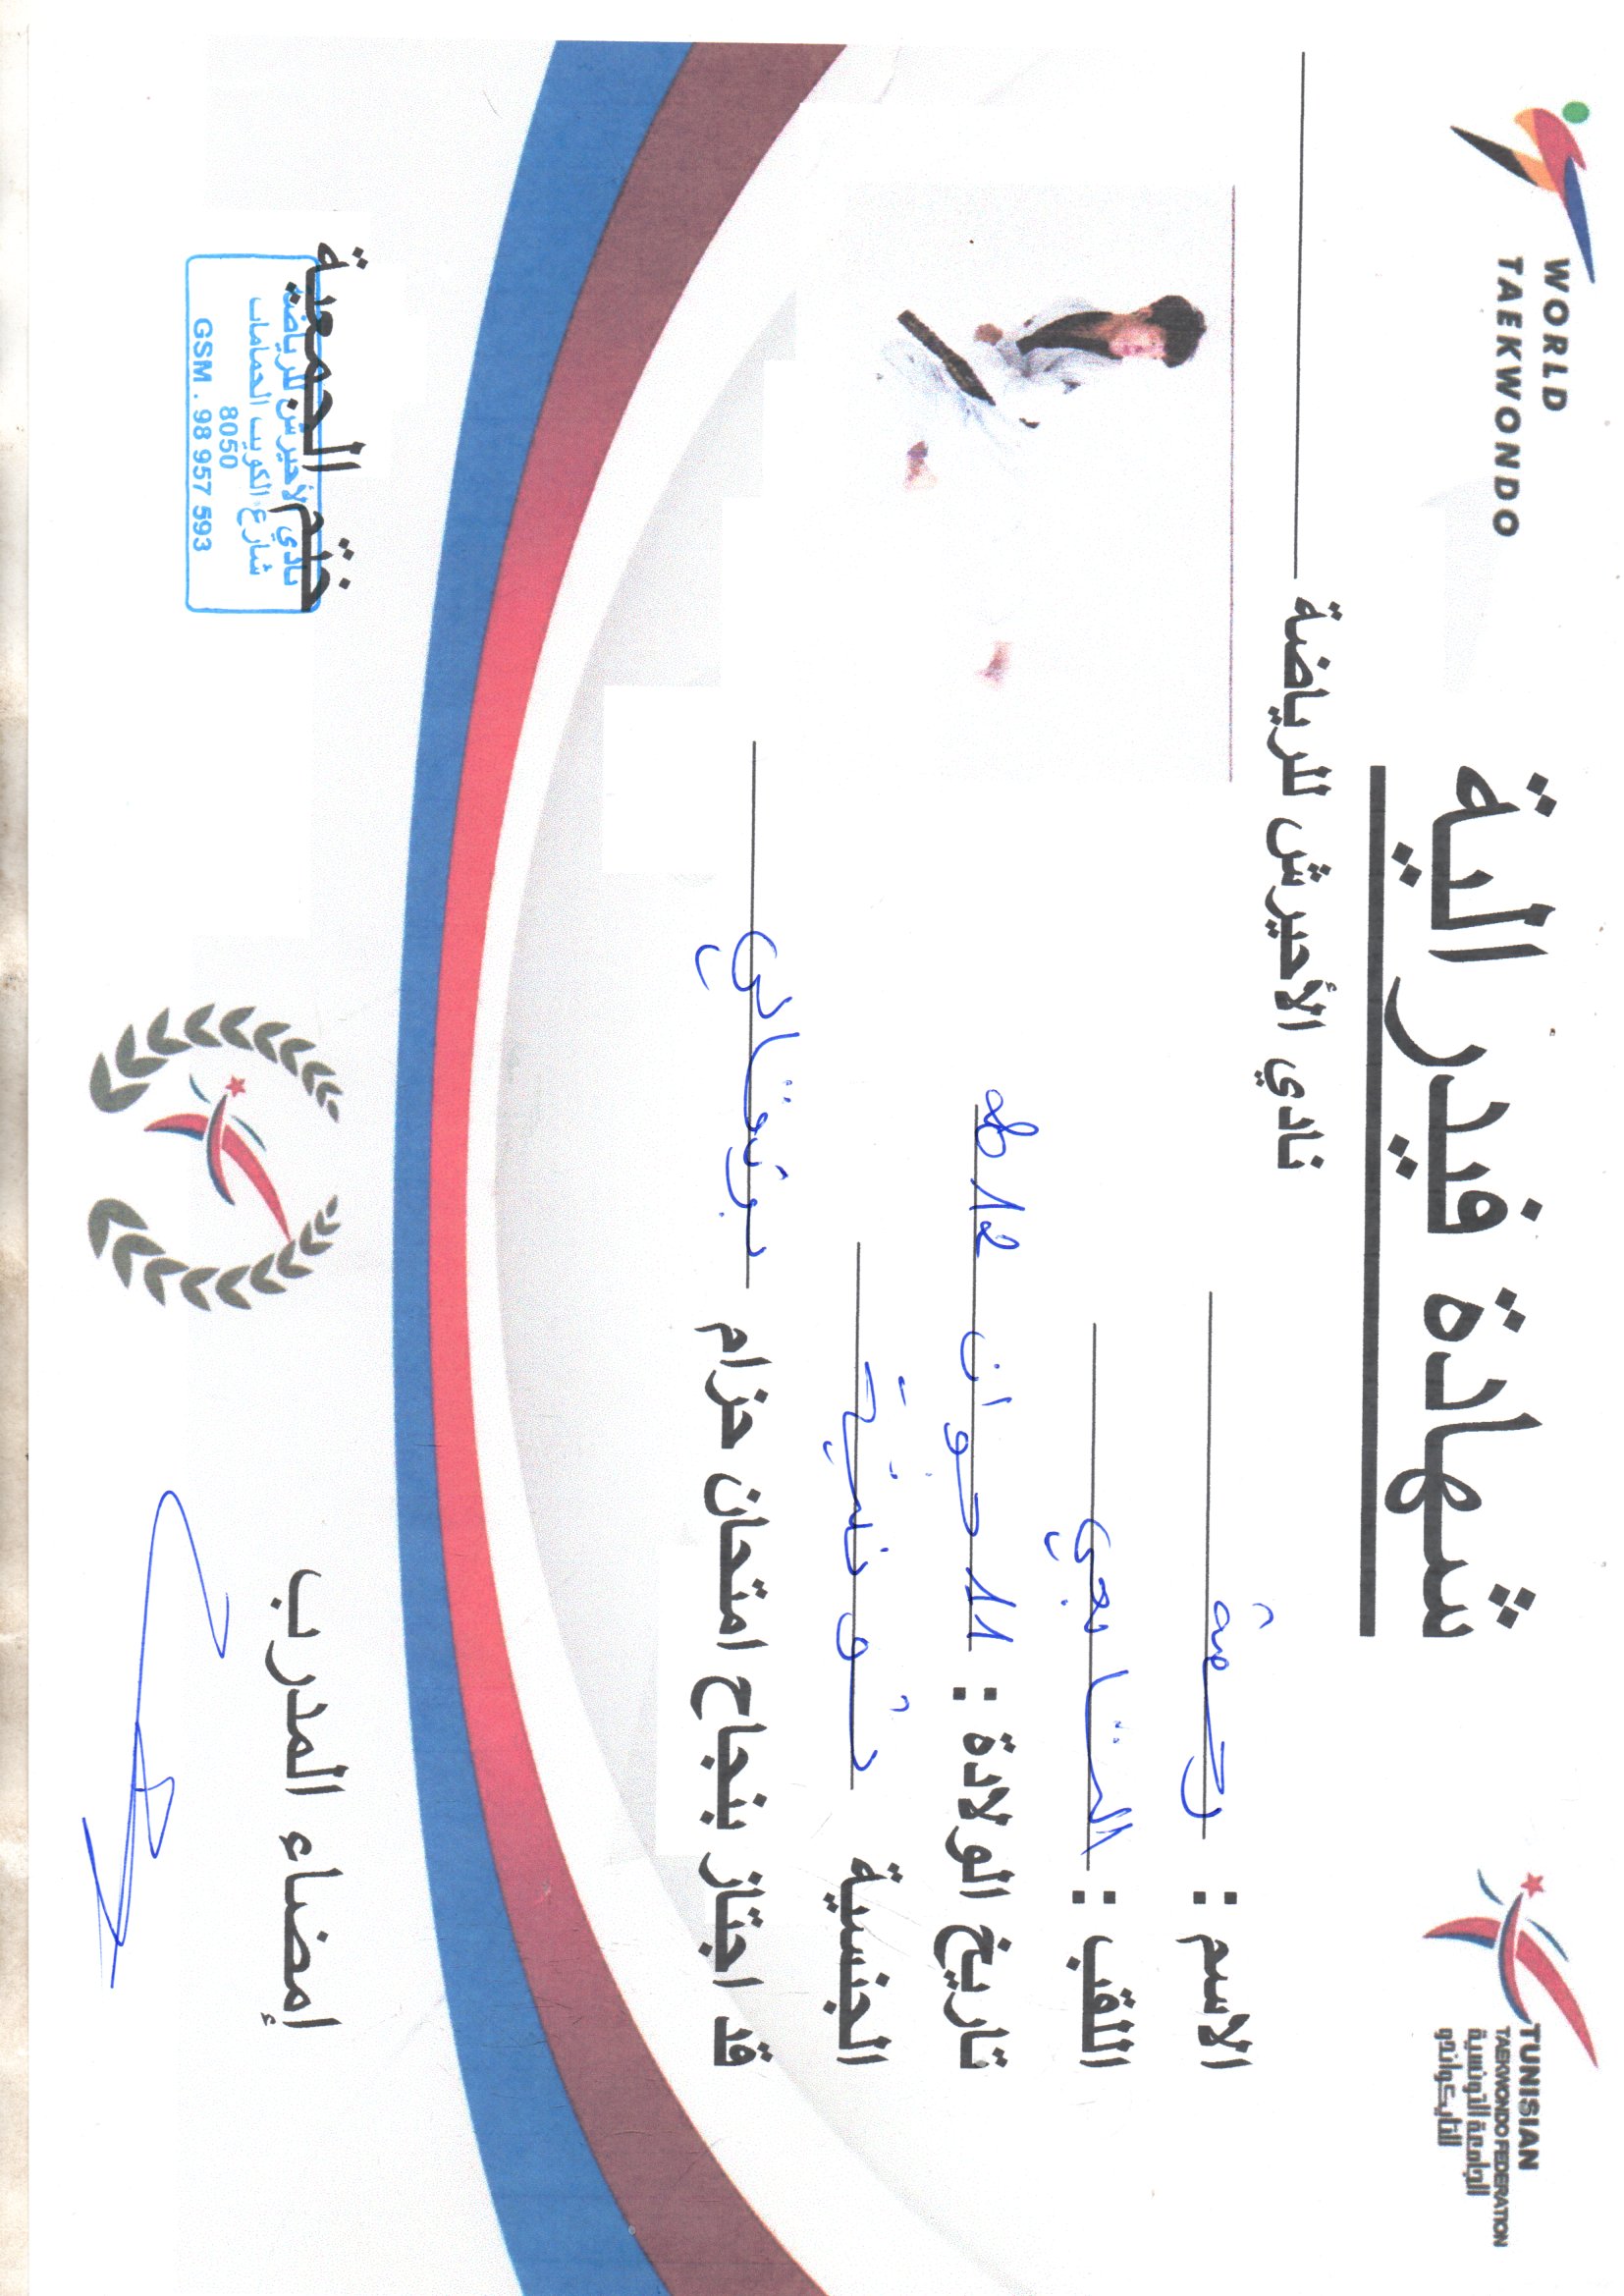 WORLD
TAEKWONDO
TUNISIAN
TAEKWONDO FEDERATION
الجامعة التونسية
للتايكواندو
شهادة فيدرالية
نادي الأحيرش للرياضة
الاسم : رحمة
اللقب :
تاريخ الولادة : 11 جوان
الجنسية تونسية
قد اجتاز بنجاح امتحان حزام برتقالي
إمضاء المدرب
ختم الجمعية
نادي الأحيرش للرياضة
شارع الكويت الحمامات
8050
GSM . 98 957 593